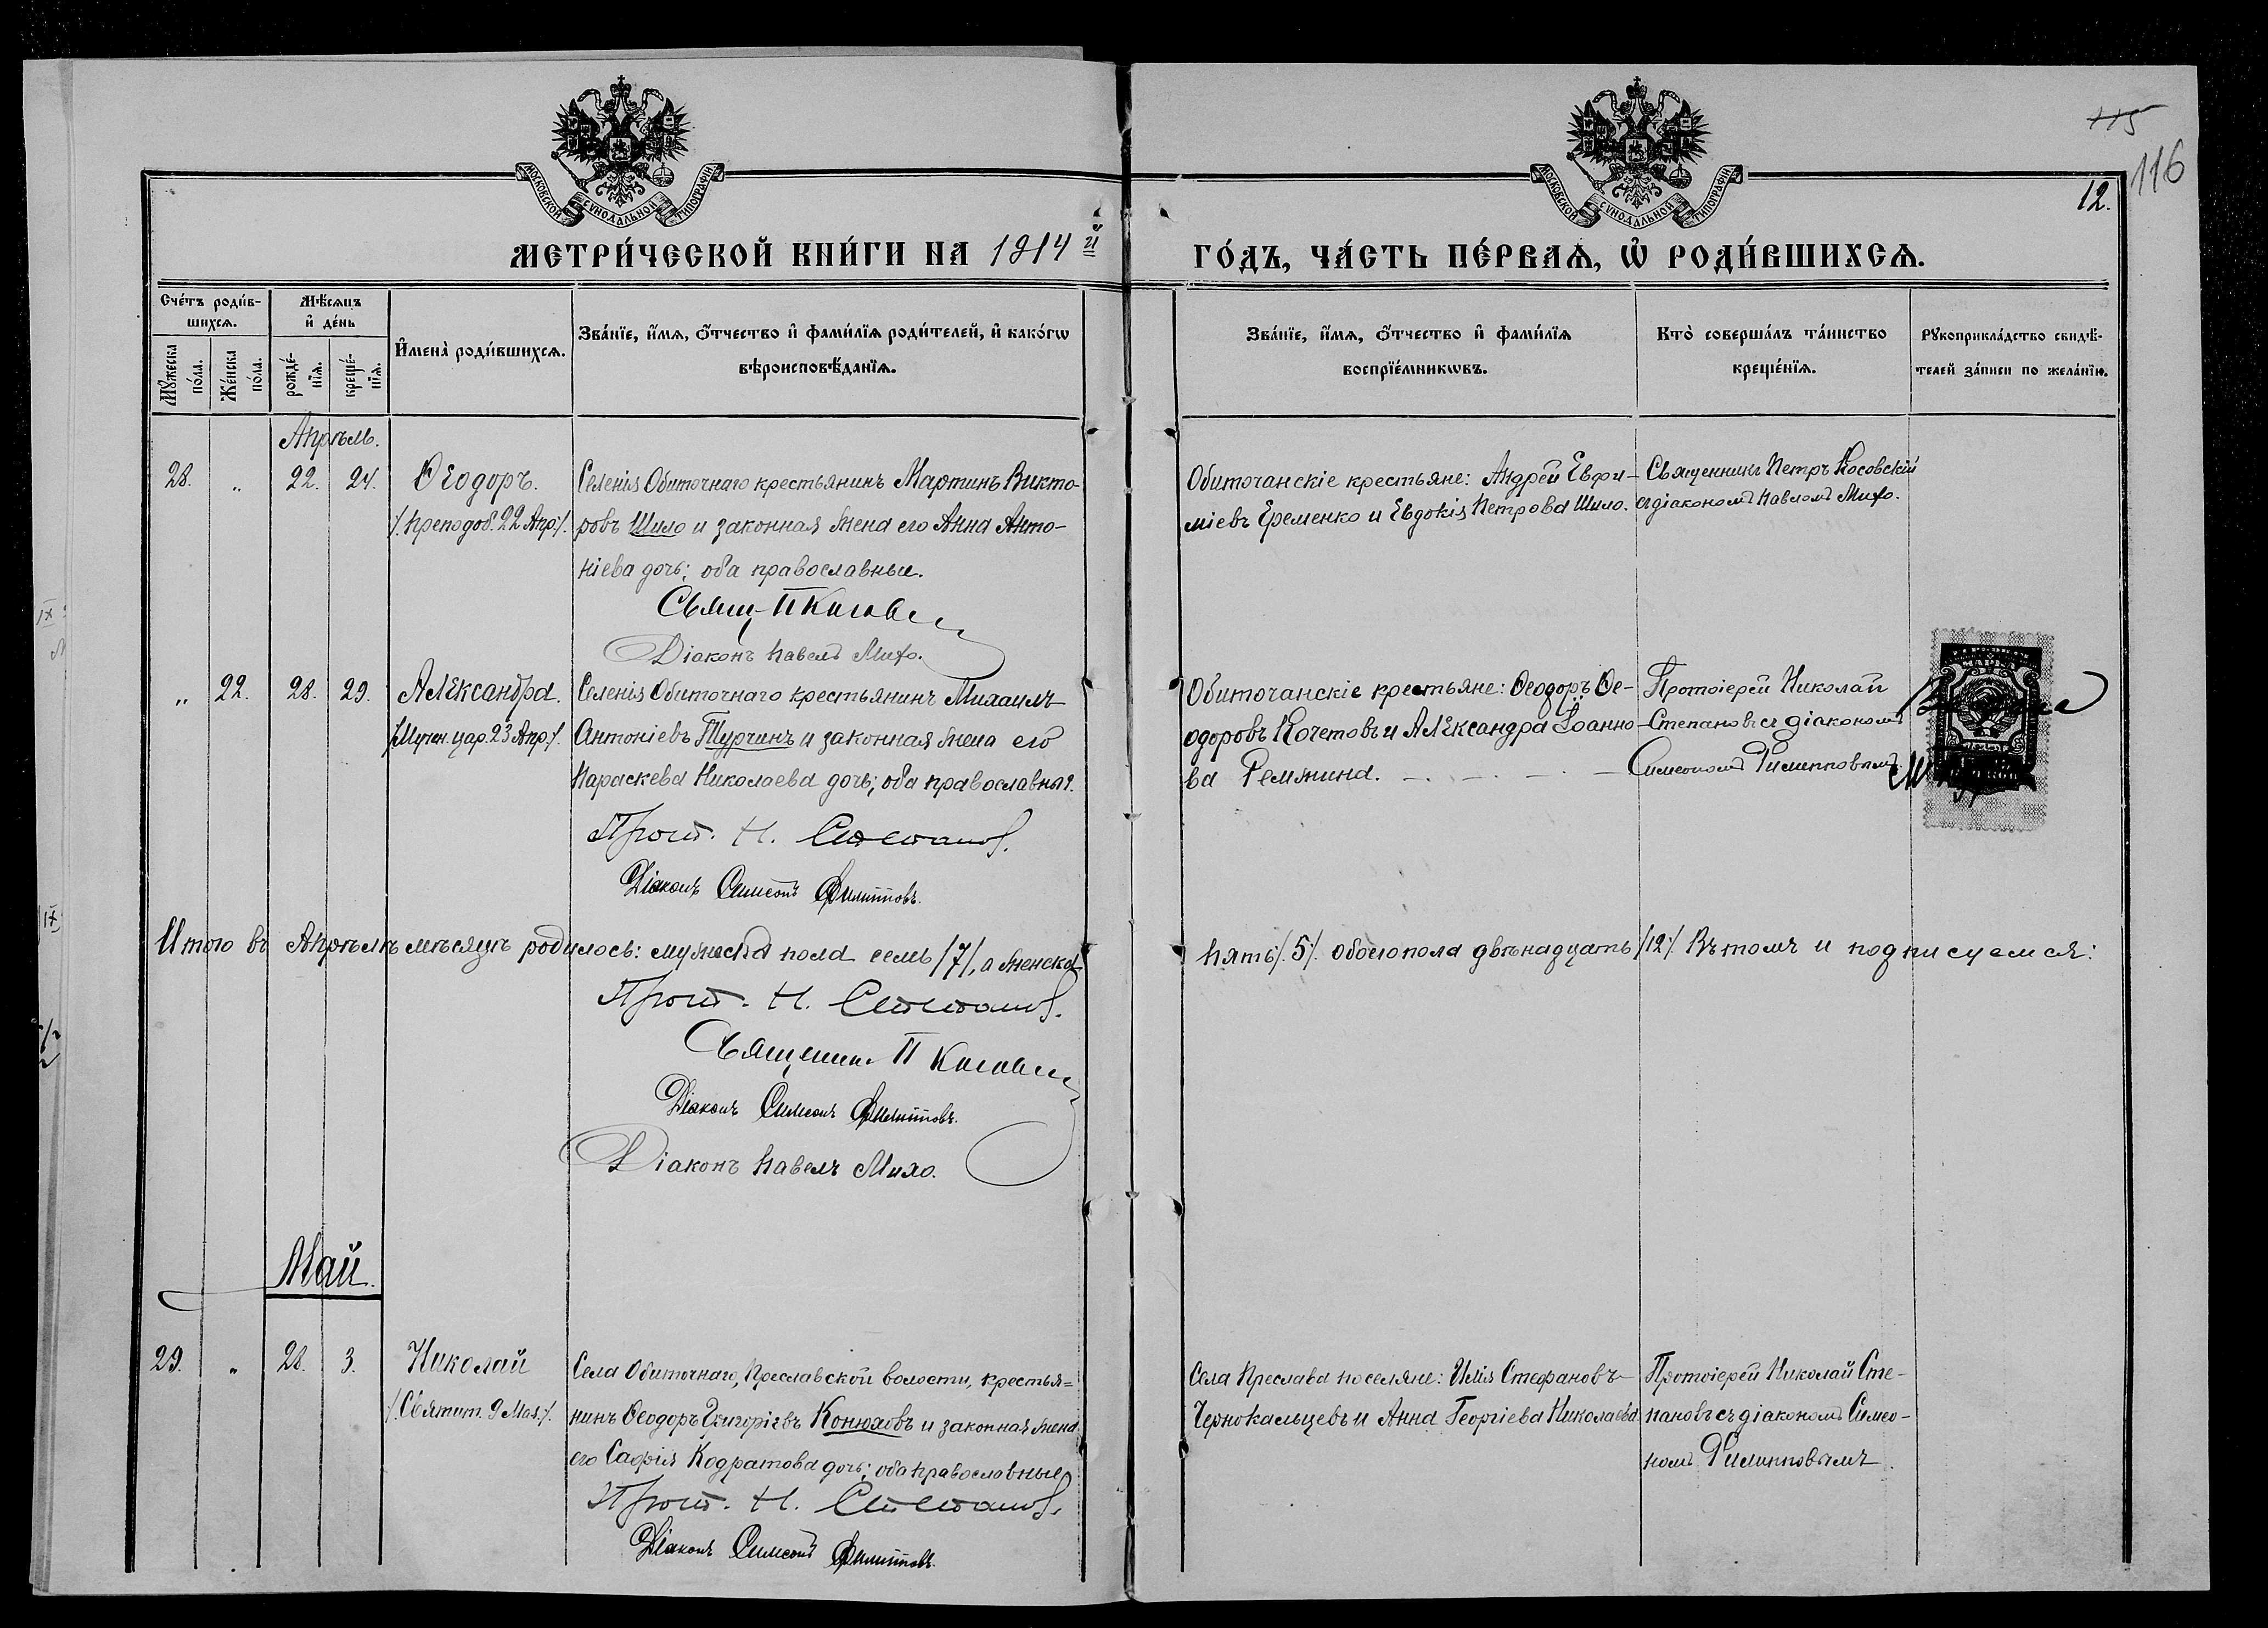 115
116
12.
МОСКОВСКОЙ СУНОДАЛЬНОЙ ТИПОГРАФІИ
МОСКОВСКОЙ СУНОДАЛЬНОЙ ТИПОГРАФІИ
МЕТРИ́ЧЕСКОЙ КНИ́ГИ НА 1914й
ГО́ДЪ, ЧА́СТЬ ПЕ́РВАѦ, Ѡ҆ РОДИ́ВШИХСѦ.
Сче́тъ роди́в-
шихсѧ.
Мꙋ́жеска
по́ла.
Же́нска
по́ла.
Мѣ́сѧцъ
и҆ де́нь
рожде́-
нїѧ.
креще́-
нїѧ.
И҆мена̀ роди́вшихсѧ.
Зва́нїе, и҆́мѧ, ѻ҆́тчество и҆ фами́лїѧ роди́телей, и҆ како́гѡ
вѣроисповѣ́данїѧ.
Зва́нїе, и҆́мѧ, ѻ҆́тчество и҆ фами́лїѧ
воспрїе́мникѡвъ.
Кто̀ соверша́лъ та́инство
креще́нїѧ.
Рꙋкоприкла́дство свидѣ́-
телей за́писи по жела́нїю.
Апрѣль.
28. „ 22. 24.
Ѳеодоръ.
/.Преподоб. 22 Апр./.
Селенія Обиточнаго крестьянинъ Мартинъ Викто-
ровъ Шило и законная жена его Анна Анто-
ніева дочь; оба православные.
Свящ. П Косовс
Діаконъ Павелъ Михо.
Обиточанскіе крестьяне: Андрей Евфи-
міевъ Еременко и Евдокія Петрова Шило.
Священникъ Петръ Косовскій
съ діакономъ Павломъ Михо.
„ 22. 28. 29.
Александра.
/.Мучен. цар. 23 Апр./.
Селенія Обиточнаго крестьянинъ Михаилъ
Антоніевъ Турчинъ и законная жена его
Параскева Николаева дочь; оба православныя.
Прот. Н. Степановъ.
Діаконъ Симеонъ Филипповъ.
Обиточанскіе крестьяне: Ѳеодоръ Ѳе-
одоровъ Кочетовъ и Александра Іоанно-
ва Ремянина.
Протоіерей Николай
Степановъ съ діакономъ
Симеономъ Филипповымъ.
МАРКА
Итого въ Апрѣлѣ мѣсяцѣ родилось: мужеска пола семь /7/, а женска
пять /.5/. обоего пола двѣнадцать /12/. Въ томъ и подписуемся:
Прот. Н. Степановъ.
Священник П Косовс
Діаконъ Симеонъ Филипповъ.
Діаконъ Павелъ Михо.
Май.
29. „ 28. 3.
Николай
/.Святит. 9 Мая./.
Села Обиточнаго, Преславской волости, крестья=
нинъ Ѳеодоръ Григоріевъ Конюховъ и законная жена
его Софія Кодратова дочь; оба православные
Прот. Н. Степановъ.
Діаконъ Симеонъ Филипповъ.
Села Преслава поселяне: Илія Стефановъ
Чернокальцевъ и Анна Георгіева Николаева
Протоіерей Николай Сте-
пановъ съ діакономъ Симео-
номъ Филипповымъ.